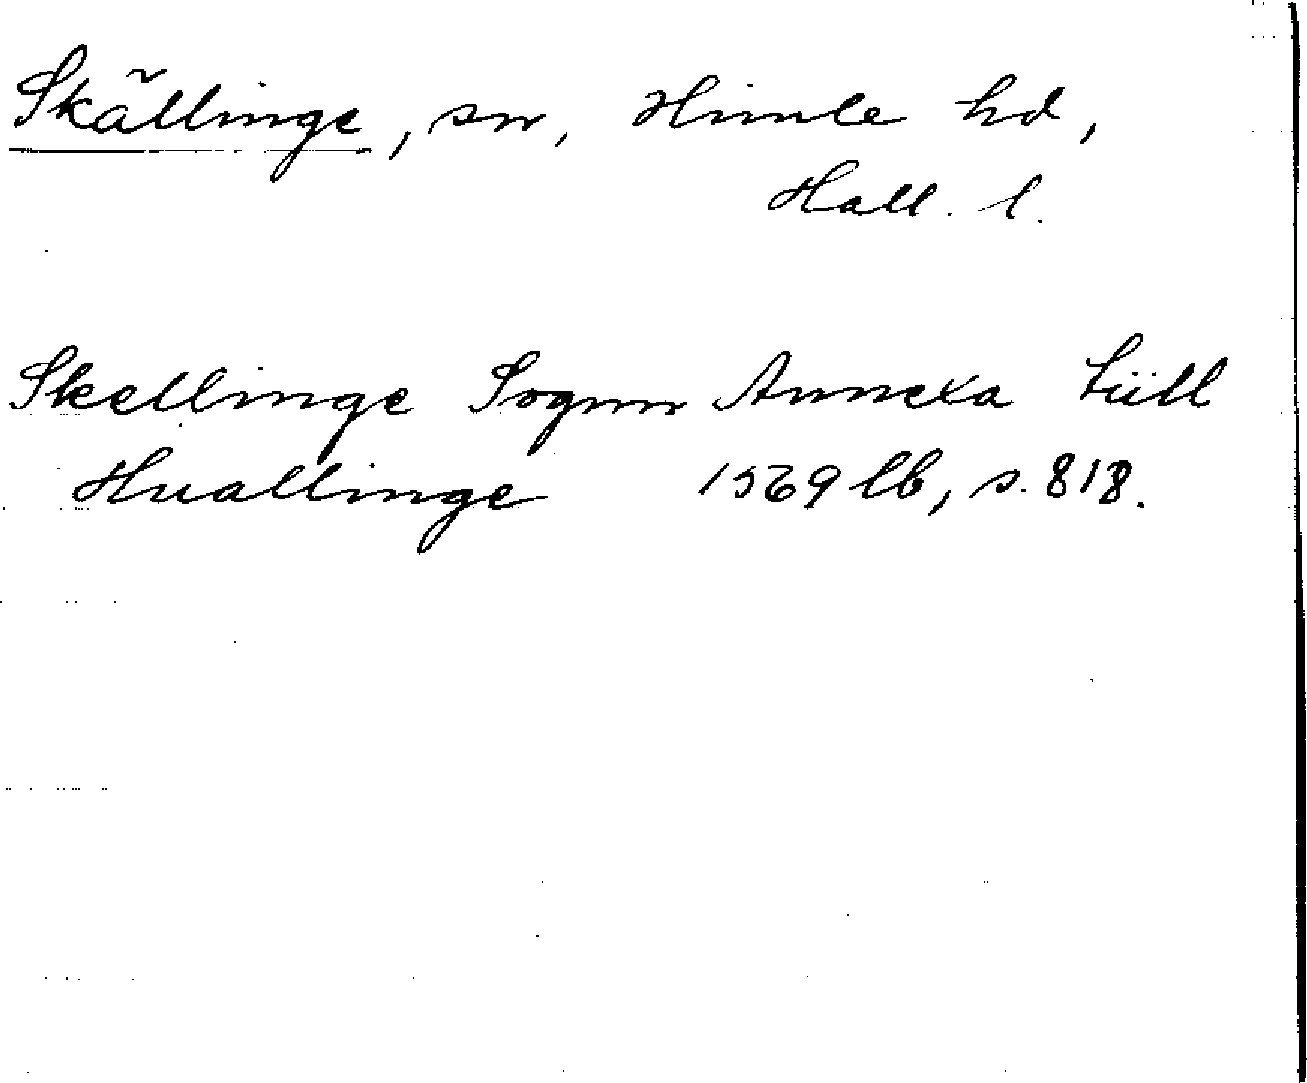 Skällinge, sn, Himle hd,
Hall. l.
Skellinge Sognn Annexa tüll
Huallinge 1569 lb, s. 818.